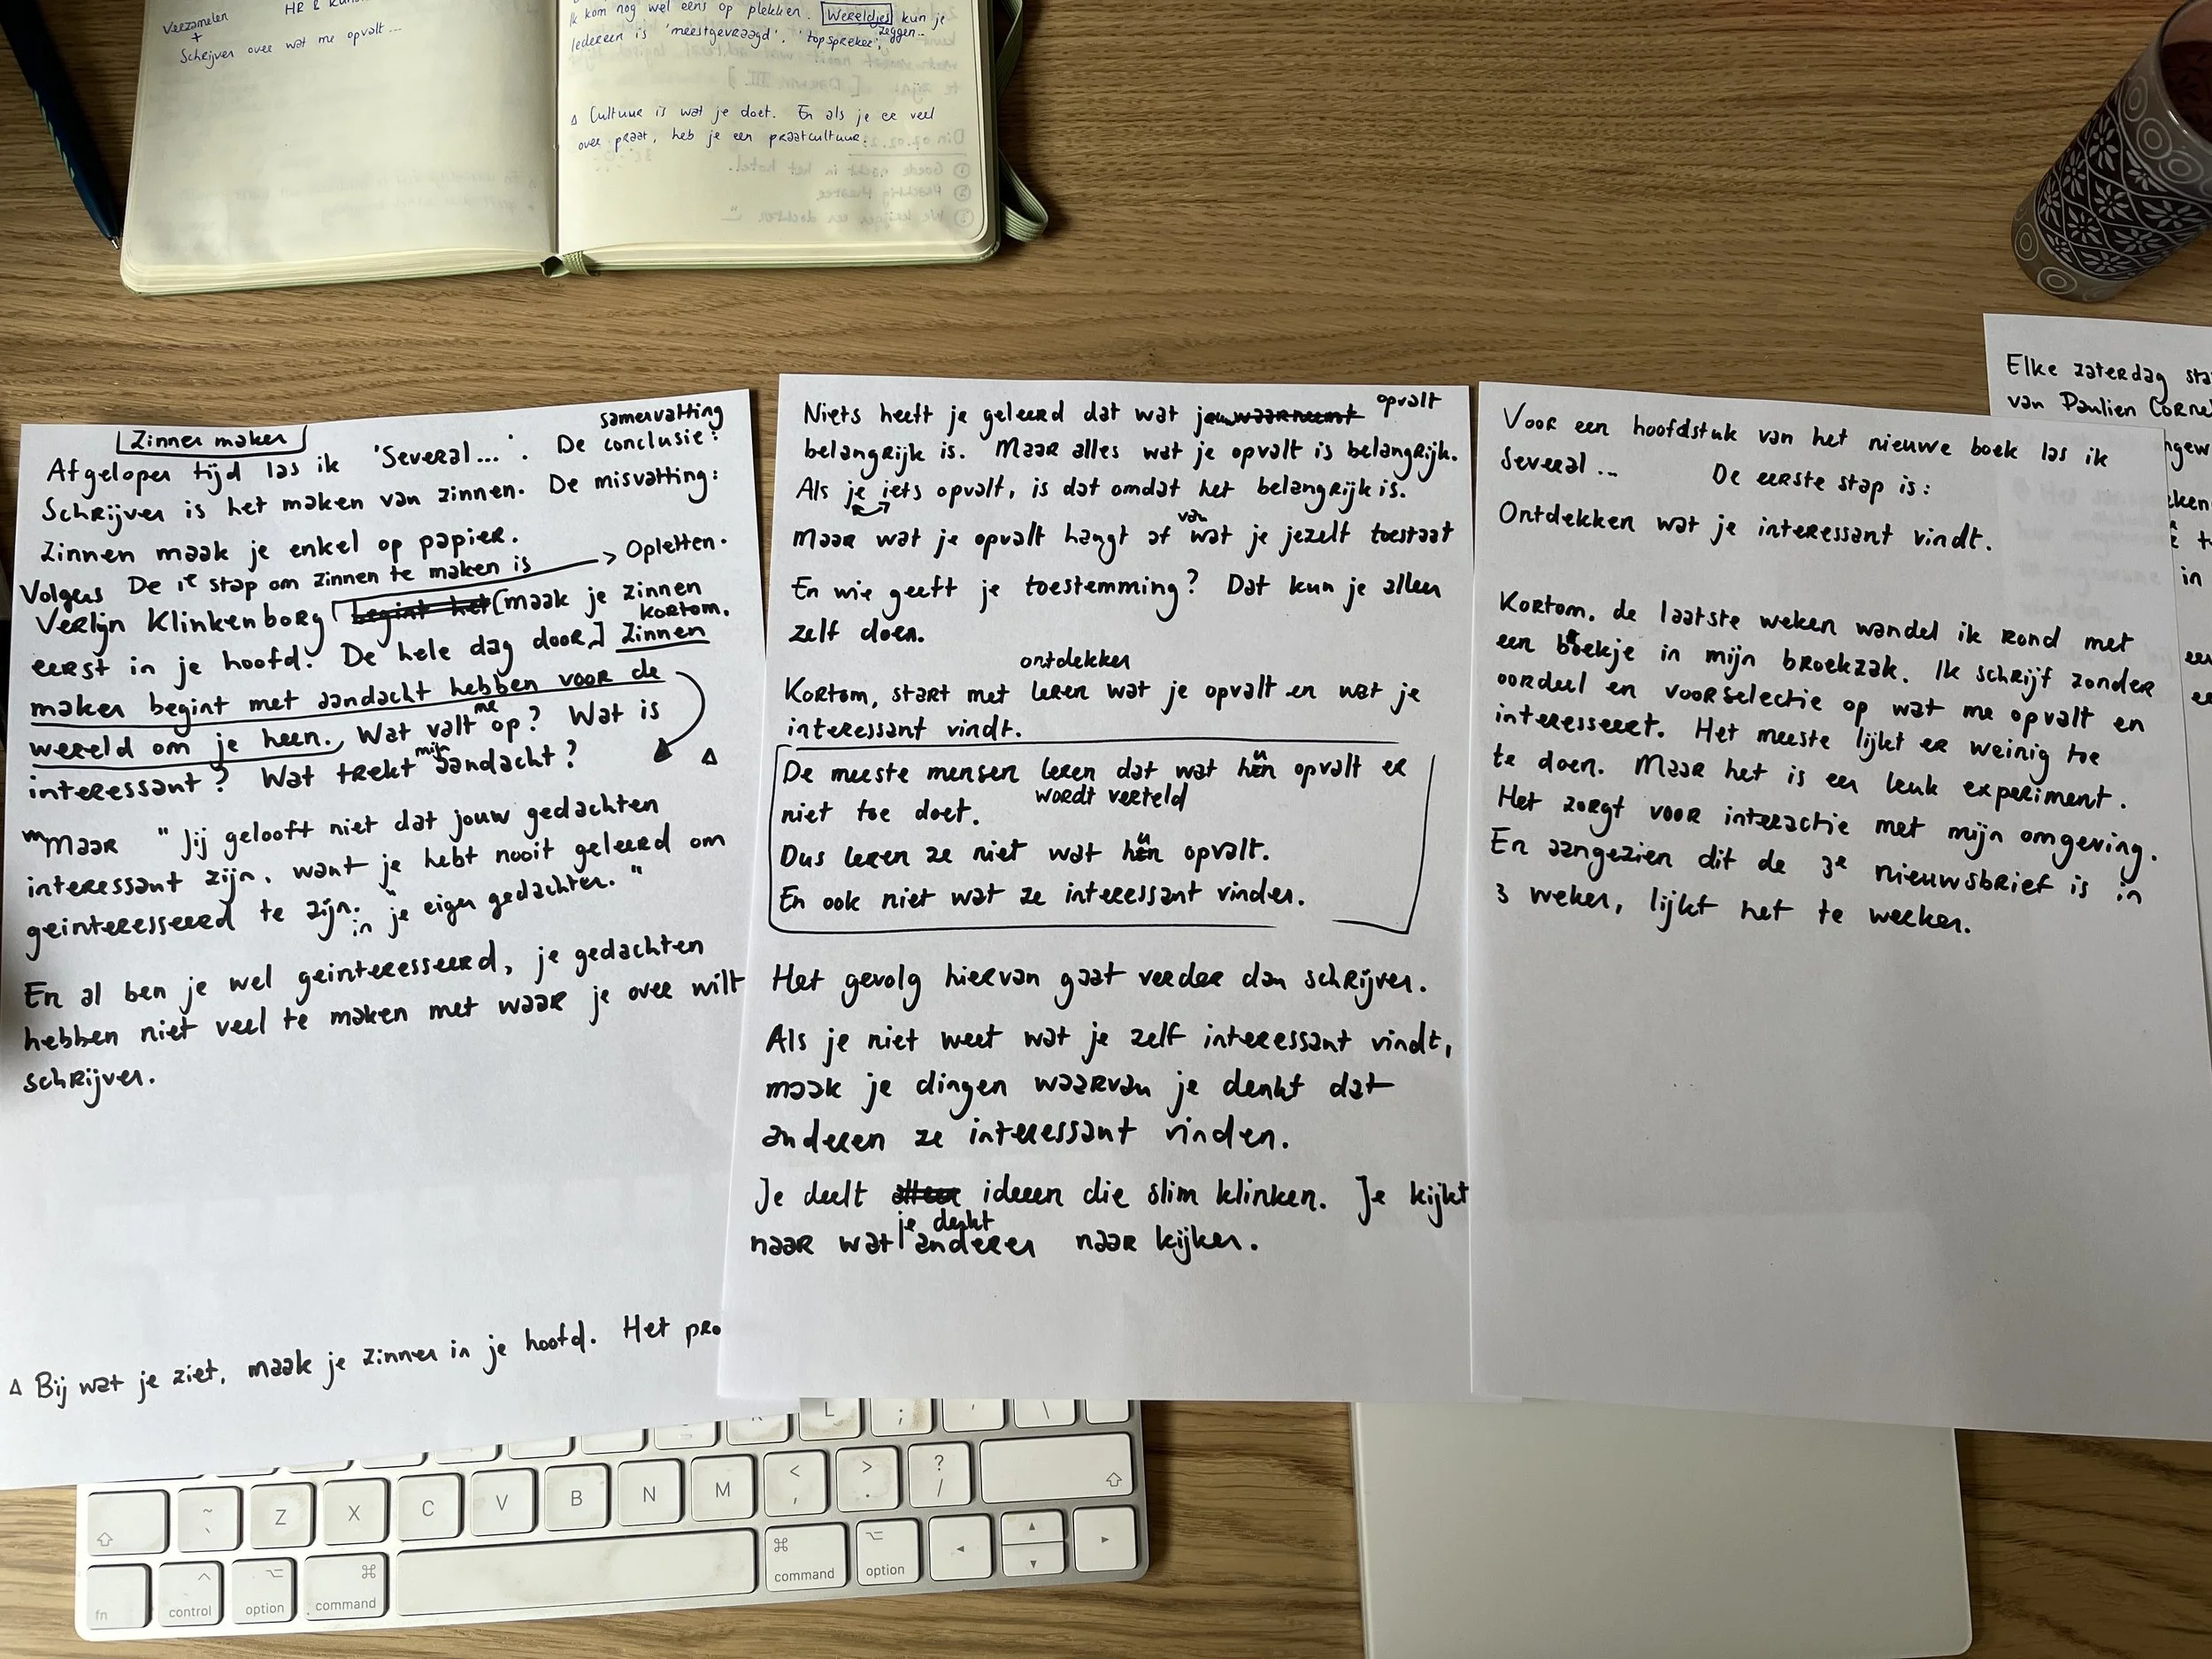 Verzamelen
+
Schrijven over wat me opvalt...
HR &
Ik kom nog wel eens op plekken. Wereldjes kun je
zeggen...
Iedereen is 'meestgevraagd'. 'topspreker',
Δ Cultuur is wat je doet. En als je er veel
over praat, heb je een praatcultuur.
Zinnen maken
samenvatting
Afgelopen tijd las ik 'Several...'. De conclusie:
Schrijven is het maken van zinnen. De misvatting:
Zinnen maak je enkel op papier.
Volgens De 1e stap om zinnen te maken is → Opletten.
Verlyn Klinkenborg begint het maak je zinnen
kortom,
eerst in je hoofd. De hele dag door. Zinnen
maken begint met aandacht hebben voor de
wereld om je heen. Wat valt me op? Wat is
interessant? Wat trekt mijn aandacht? Δ
Maar "Jij gelooft niet dat jouw gedachten
interessant zijn, want je hebt nooit geleerd om
geinteresseerd te zijn." in je eigen gedachten."
En al ben je wel geinteresseerd, je gedachten
hebben niet veel te maken met waar je over wilt
schrijven.
Δ Bij wat je ziet, maak je zinnen in je hoofd. Het pro
Niets heeft je geleerd dat wat opvalt
belangrijk is. Maar alles wat je opvalt is belangrijk.
Als je iets opvalt, is dat omdat het belangrijk is.
Maar wat je opvalt hangt af van wat je jezelf toestaat
En wie geeft je toestemming? Dat kun je alleen
zelf doen.
ontdekken
Kortom, start met leren wat je opvalt en wat je
interessant vindt.
De meeste mensen leren dat wat hun opvalt er
wordt verteld
niet toe doet.
Dus leren ze niet wat hun opvalt.
En ook niet wat ze interessant vinden.
Het gevolg hiervan gaat verder dan schrijven.
Als je niet weet wat je zelf interessant vindt,
maak je dingen waarvan je denkt dat
anderen ze interessant vinden.
Je deelt alleen ideeen die slim klinken. Je kijkt
je denkt
naar wat anderen naar kijken.
Voor een hoofdstuk van het nieuwe boek las ik
Several... De eerste stap is:
Ontdekken wat je interessant vindt.
Kortom, de laatste weken wandel ik rond met
een boekje in mijn broekzak. Ik schrijf zonder
oordeel en voorselectie op wat me opvalt en
interesseert. Het meeste lijkt er weinig toe
te doen. Maar het is een leuk experiment.
Het zorgt voor interactie met mijn omgeving.
En aangezien dit de 3e nieuwsbrief is in
3 weken, lijkt het te werken.
Elke zaterdag sta
van Paulien Corne
~ ` Z X C V B N M < , > . ? /
fn control option command command option